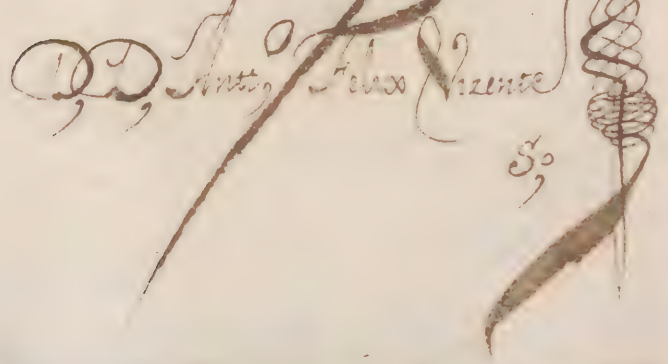 D. D. Antto, Felix Vizente
So,